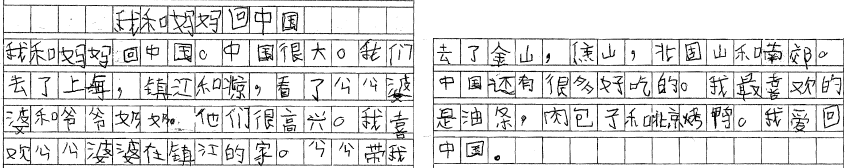 我和妈妈回中国
我和妈妈回中国。中国很大。我们
去了上海，镇江和南京，看了公公婆
婆和爷爷奶奶。他们很高兴。我喜
欢公公婆婆在镇江的家。公公带我
去了金山，焦山，北固山和南郊。
中国还有很多好吃的。我最喜欢的
是油条，肉包子和北京烤鸭。我爱回
中国。